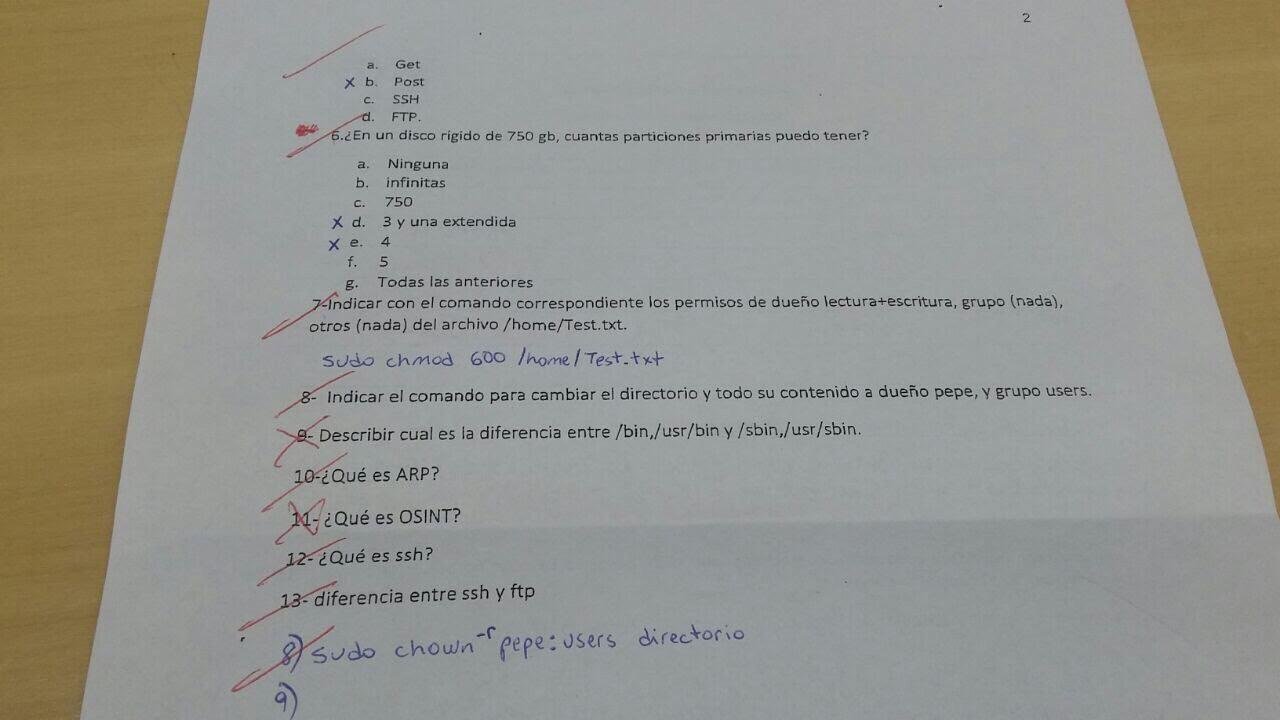 2
a. Get
X b. Post
c. SSH
d. FTP.
6.¿En un disco rigido de 750 gb, cuantas particiones primarias puedo tener?
a. Ninguna
b. infinitas
c. 750
X d. 3 y una extendida
X e. 4
f. 5
g. Todas las anteriores
7-Indicar con el comando correspondiente los permisos de dueño lectura+escritura, grupo (nada),
otros (nada) del archivo /home/Test.txt.
sudo chmod 600 /home/Test.txt
8- Indicar el comando para cambiar el directorio y todo su contenido a dueño pepe, y grupo users.
9- Describir cual es la diferencia entre /bin,/usr/bin y /sbin,/usr/sbin.
10-¿Qué es ARP?
11- ¿Qué es OSINT?
12- ¿Qué es ssh?
13- diferencia entre ssh y ftp
8) sudo chown -r pepe:users directorio
9)